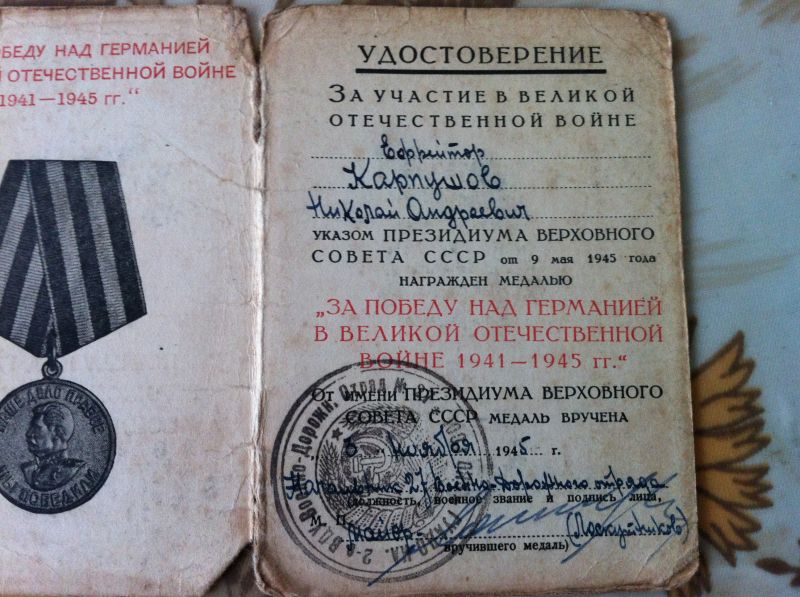 ОБЕДУ НАД ГЕРМАНИЕЙ
Й ОТЕЧЕСТВЕННОЙ ВОЙНЕ
1941—1945 гг.“
НАШЕ ДЕЛО ПРАВОЕ
МЫ ПОБЕДИЛИ
УДОСТОВЕРЕНИЕ
ЗА УЧАСТИЕ В ВЕЛИКОЙ
ОТЕЧЕСТВЕННОЙ ВОЙНЕ
Ефрейтор
Карпушов
Николай Андреевич
УКАЗОМ ПРЕЗИДИУМА ВЕРХОВНОГО
СОВЕТА СССР от 9 мая 1945 года
НАГРАЖДЕН МЕДАЛЬЮ
„ЗА ПОБЕДУ НАД ГЕРМАНИЕЙ
В ВЕЛИКОЙ ОТЕЧЕСТВЕННОЙ
ВОЙНЕ 1941—1945 гг.“
От имени ПРЕЗИДИУМА ВЕРХОВНОГО
СОВЕТА СССР МЕДАЛЬ ВРУЧЕНА
3 ноября 1945 г.
Начальник 27 Военно-Дорожного отряда
(должность, военное звание и подпись лица,
М. П. майор (Лоскутников)
вручившего медаль)
Военно-Дорожн. Отряд №